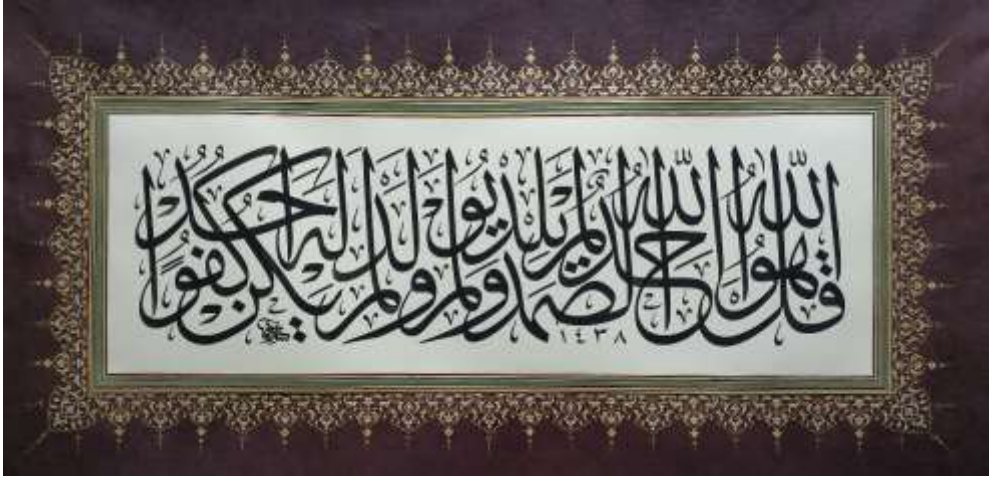 قُلْ هُوَ اللّٰهُ أَحَدٌ اللّٰهُ الصَّمَدُ لَمْ يَلِدْ وَلَمْ يُولَدْ وَلَمْ يَكُنْ لَهُ كُفُوًا أَحَدٌ
١٤٣٨